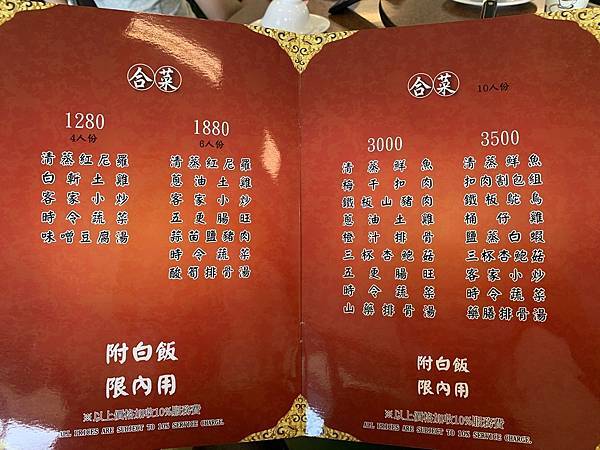 合菜
1280
4人份
清蒸紅尼羅
白斬土雞
客家小炒
時令蔬菜
味噌豆腐湯
1880
6人份
清蒸紅尼羅
蔥油土雞
客家小炒
五更腸旺
蒜苗鹽豬肉
時令蔬菜
酸筍排骨湯
附白飯
限內用
※以上價格加收10%服務費
ALL PRICES ARE SUBJECT TO 10% SERVICE CHARGE.
合菜 10人份
3000
清蒸鮮魚
梅干扣肉
鐵板山豬肉
蔥油土雞
橙汁排骨
三杯杏鮑菇
五更腸旺
時令蔬菜
山藥排骨湯
3500
清蒸鮮魚
扣肉割包組
鐵板鴕鳥
桶仔雞
鹽蒸白蝦
三杯杏鮑菇
客家小炒
時令蔬菜
藥膳排骨湯
附白飯
限內用
※以上價格加收10%服務費
ALL PRICES ARE SUBJECT TO 10% SERVICE CHARGE.